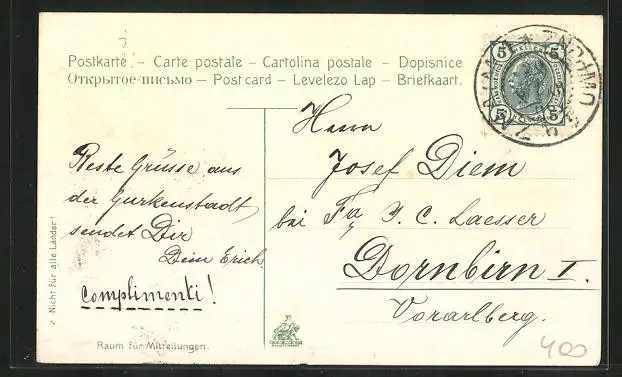 Postkarte – Carte postale – Cartolina postale – Dopisnice
Открытое письмо – Post card – Levelezo Lap – Briefkaart.
5 5
5 5
ZNOJMO * ZNAIM
Herrn
Josef Diem
bei Fa. J. C. Laesser
Dornbirn I.
Vorarlberg.
Beste Grüsse aus
der Gurkenstadt
sendet Dir
Dein Erich
Complimenti!
Nicht für alle Länder!
Raum für Mitteilungen.
400